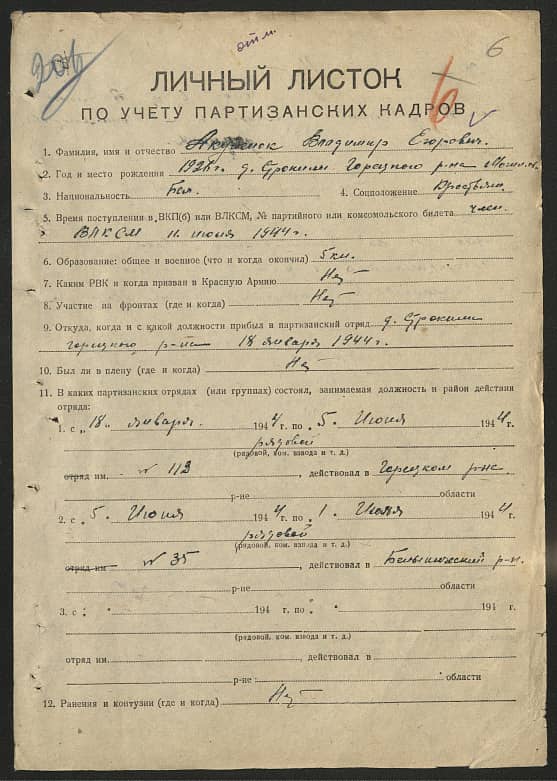 отм.
6
6
ЛИЧНЫЙ ЛИСТОК
ПО УЧЕТУ ПАРТИЗАНСКИХ КАДРОВ
1. Фамилия, имя и отчество Владимир Егорович.
2. Год и место рождения д. Строкили Горецкого р-на
3. Национальность Бел. 4. Соцположение
5. Время поступления в ВКП(б) или ВЛКСМ, № партийного или комсомольского билета член
ВЛКСМ 11 июня 1944 г.
6. Образование: общее и военное (что и когда окончил) 5 кл.
7. Каким РВК и когда призван в Красную Армию Нет
8. Участие на фронтах (где и когда) Нет
9. Откуда, когда и с какой должности прибыл в партизанский отряд д. Строкили
р-на 18 января 1944 г.
10. Был ли в плену (где и когда) Нет
11. В каких партизанских отрядах (или группах) состоял, занимаемая должность и район действия
отряда:
1. с „18" января. 1944 г. по „5. Июня 1944 г.
рядовой
(рядовой, ком. взвода и т. д.)
отряд им. № 113, действовал в Горецком р-не.
р-не области
2. с „5. Июня 1944 г. по „1 1944 г.
рядовой
(рядовой, ком. взвода и т. д.)
отряд им № 35, действовал в р-н.
р-не области
3. с „ " 194 г. по „ " 194 г.
(рядовой, ком. взвода и т. д.)
отряд им. , действовал в
р-не области
12. Ранения и контузии (где и когда) Нет